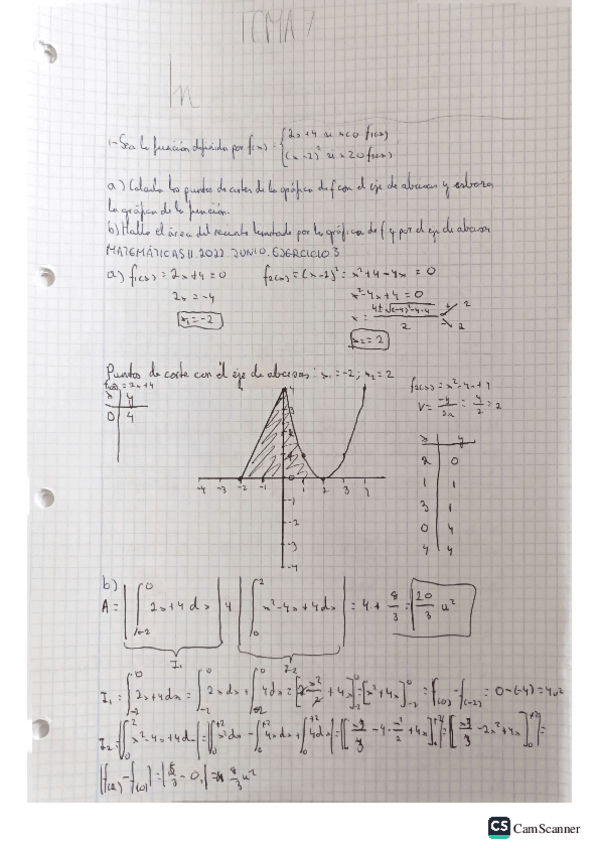 TEMA 7
1-Sea la función definida por f(x) = { 2x+4 si x<0 f1(x)
(x-2)² si x≥0 f2(x)
a) Calcula los puntos de cortes de la gráfica de f con el eje de abscisas y esboza
la gráfica de la función.
b) Halla el área del recinto limitado por la gráfica de f y por el eje de abscisas
MATEMÁTICAS II. 2022. JUNIO. EJERCICIO 3
a) f1(x) = 2x+4 = 0 f2(x) = (x-2)² = x²+4-4x = 0
2x = -4 x²-4x+4 = 0
x1 = -2 x = 4±√(-4)²-4·4 / 2 2 2
x2 = 2
Puntos de corte con el eje de abscisas: x1 = -2; x2 = 2
f1(x) = 2x+4 f2(x) = x²-4x+4
x y V = -b/2a = 4/2 = 2
0 4
x y
2 0
1 1
3 1
0 4
4 4
4
-4 -3 -2 -1 0 1 2 3
-1
-2
-3
-4
b)
A = |∫ 2x+4 dx| + |∫ x²-4x+4 dx| = 4 + 8/3 = 20/3 u²
I1 = ∫ 2x+4 dx = ∫ 2x dx + ∫ 4 dx = [2 x²/2 + 4x] = [x²+4x] = f(0) - f(-2) = 0-(-4) = 4u²
I2 = |∫ x²-4x+4 dx| = |∫ x² dx - ∫ 4x dx + ∫ 4 dx| = |[x³/3 - 4·x²/2 + 4x]| = |[x³/3 - 2x²+4x]| =
|f(2) - f(0)| = |8/3 - 0| = 8/3 u²
CS CamScanner